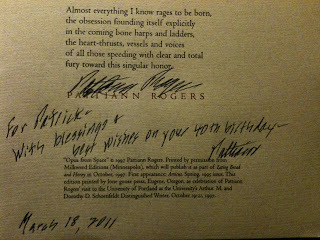 Almost everything I know rages to be born,
the obsession founding itself explicitly
in the coming bone harps and ladders,
the heart-thrusts, vessels and voices
of all those speeding with clear and total
fury toward this singular honor.
Pattiann Rogers
PATTIANN ROGERS
For Patrick—
With blessings &
best wishes on your 40th birthday—
Pattiann
"Opus from Space" © 1997 Pattiann Rogers. Printed by permission from
Milkweed Editions (Minneapolis), which will publish it as part of Eating Bread
and Honey in October, 1997. First appearance: Amicus, Spring 1995 issue. This
edition printed by knee goose press, Eugene, Oregon, in celebration of Pattiann
Rogers' visit to the University of Portland as the University's Arthur M. and
Dorothy D. Schoenfeldt Distinguished Writer, October 1997.
March 18, 2011